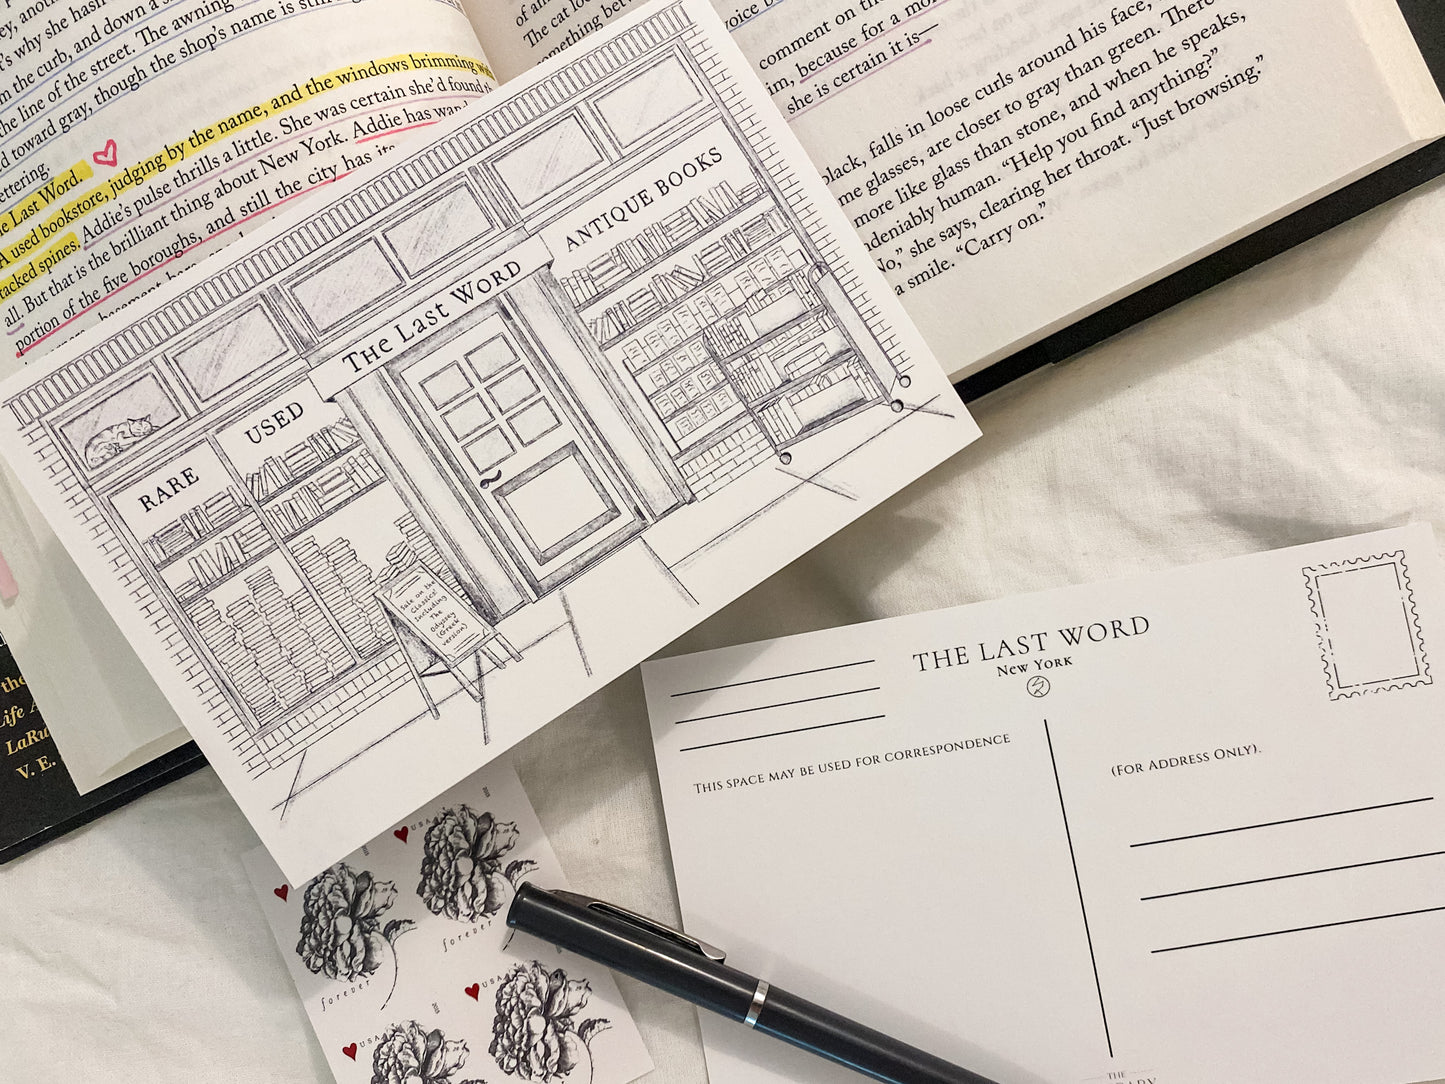 ey, anoth
's why she hasn
m the curb, and down a s
the line of the street. The awning
d toward gray, though the shop's name is still
ettering.
e Last Word.
A used bookstore, judging by the name, and the windows brimming
tacked spines. Addie's pulse thrills a little. She was certain she'd found
all. But that is the brilliant thing about New York. Addie has wand
portion of the five boroughs, and still the city has its
basement
of an
The cat loo
something bet
voice b
comment on th
im, because for a mo
she is certain it is—
black, falls in loose curls around his face,
me glasses, are closer to gray than green. There
more like glass than stone, and when he speaks,
ndeniably human. “Help you find anything?”
No,” she says, clearing her throat. “Just browsing.”
a smile. “Carry on.”
The Last Word
ANTIQUE BOOKS
USED
RARE
Sale on the
Classics!
Including
The
Odyssey
(Greek
version)
the
Life
LaRu
V. E.
THE LAST WORD
New York
This space may be used for correspondence
(For Address Only).
THE
USA
forever
USA
forever
USA
USA